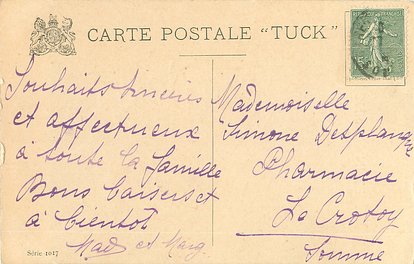 CARTE POSTALE "TUCK"
Souhaits sincères
et affectueux
à toute la famille
Bons baisers et
à bientôt
Mad et Marg.
Série 1017
Mademoiselle
Simone
Pharmacie
Le Crotoy
Somme